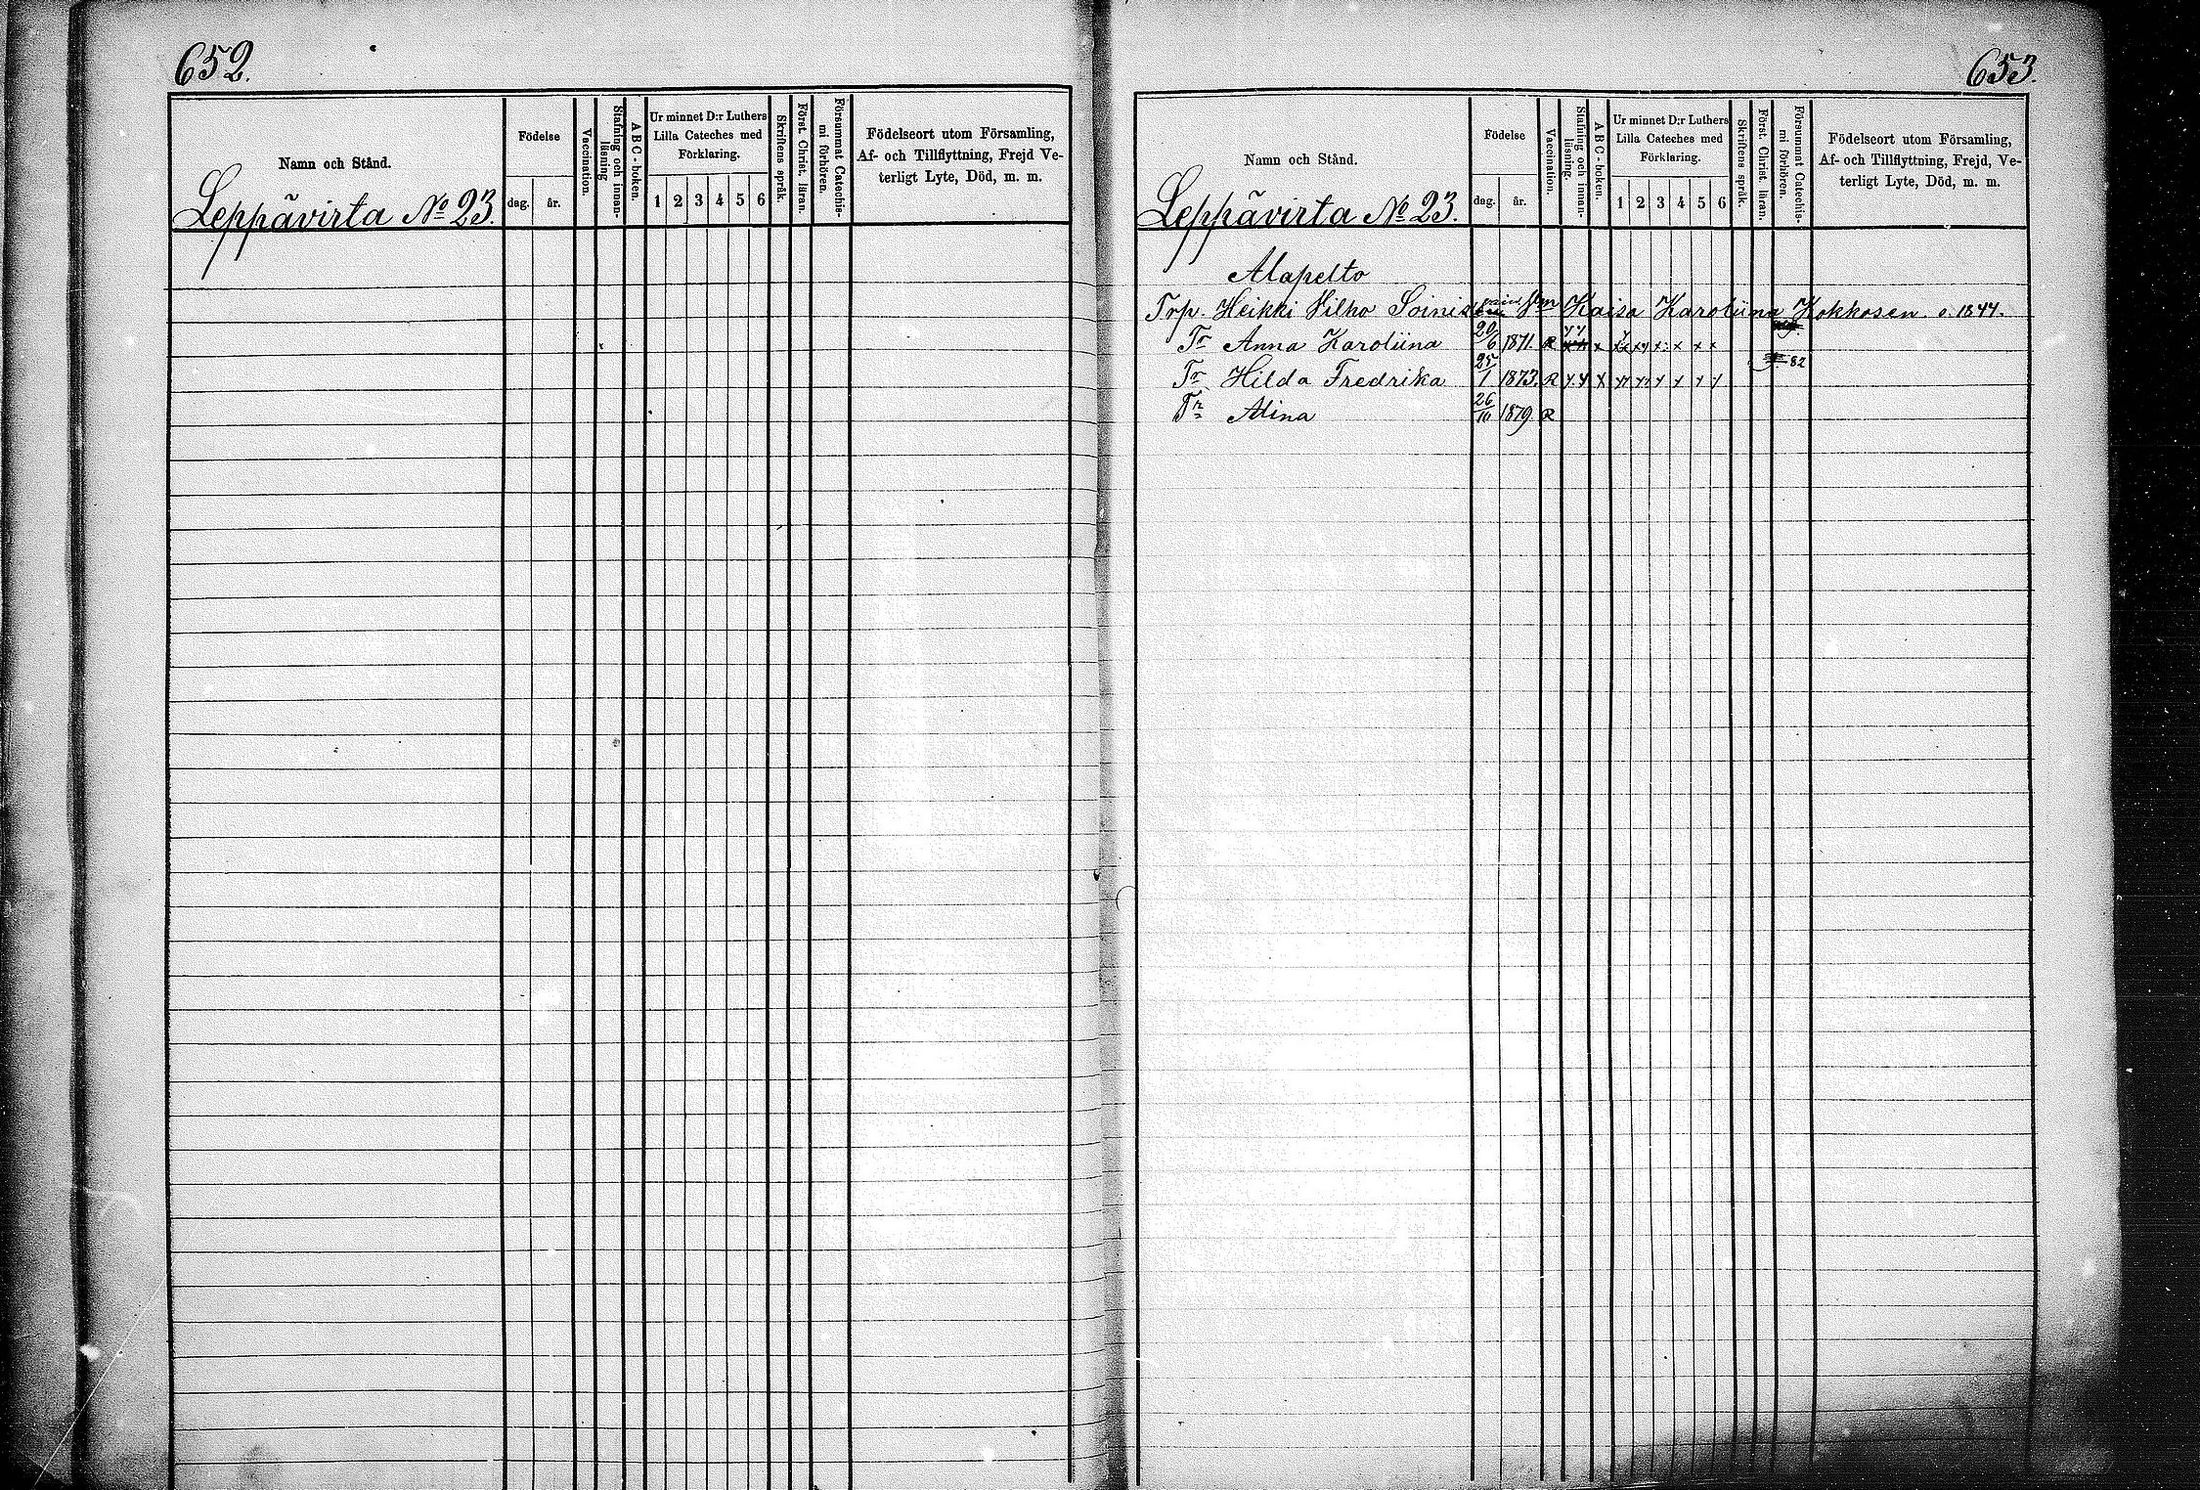 652.
Namn och Stånd.
Leppävirta No 23.
Födelse
dag.
år.
Vaccination.
Stafning och innan-
läsning
A B C - boken.
Ur minnet D:r Luthers
Lilla Cateches med
Förklaring.
1 2 3 4 5 6
Skriftens språk.
Först. Christ. läran.
Försummat Catechis-
mi förhören.
Födelseort utom Församling,
Af- och Tillflyttning, Frejd Ve-
terligt Lyte, Död, m. m.
653.
Namn och Stånd.
Leppävirta No 23.
Födelse
dag.
år.
Vaccination.
Stafning och innan-
läsning.
A B C - boken.
Ur minnet D:r Luthers
Lilla Cateches med
Förklaring.
1 2 3 4 5 6
Skriftens språk.
Först. Christ. läran.
Försummat Catechis-
mi förhören.
Födelseort utom Församling,
Af- och Tillflyttning, Frejd, Ve-
terligt Lyte, Död, m. m.
Alapelto
Trp. Heikki Vilho Kaisa Karoliina Kokkosen 1844.
Tr Anna Karoliina 20/6 1871. R x x x x x
Tr Hilda Fredrika 25/1 1873. R x x x x x 82
Tr Alina 26/10 1879 R